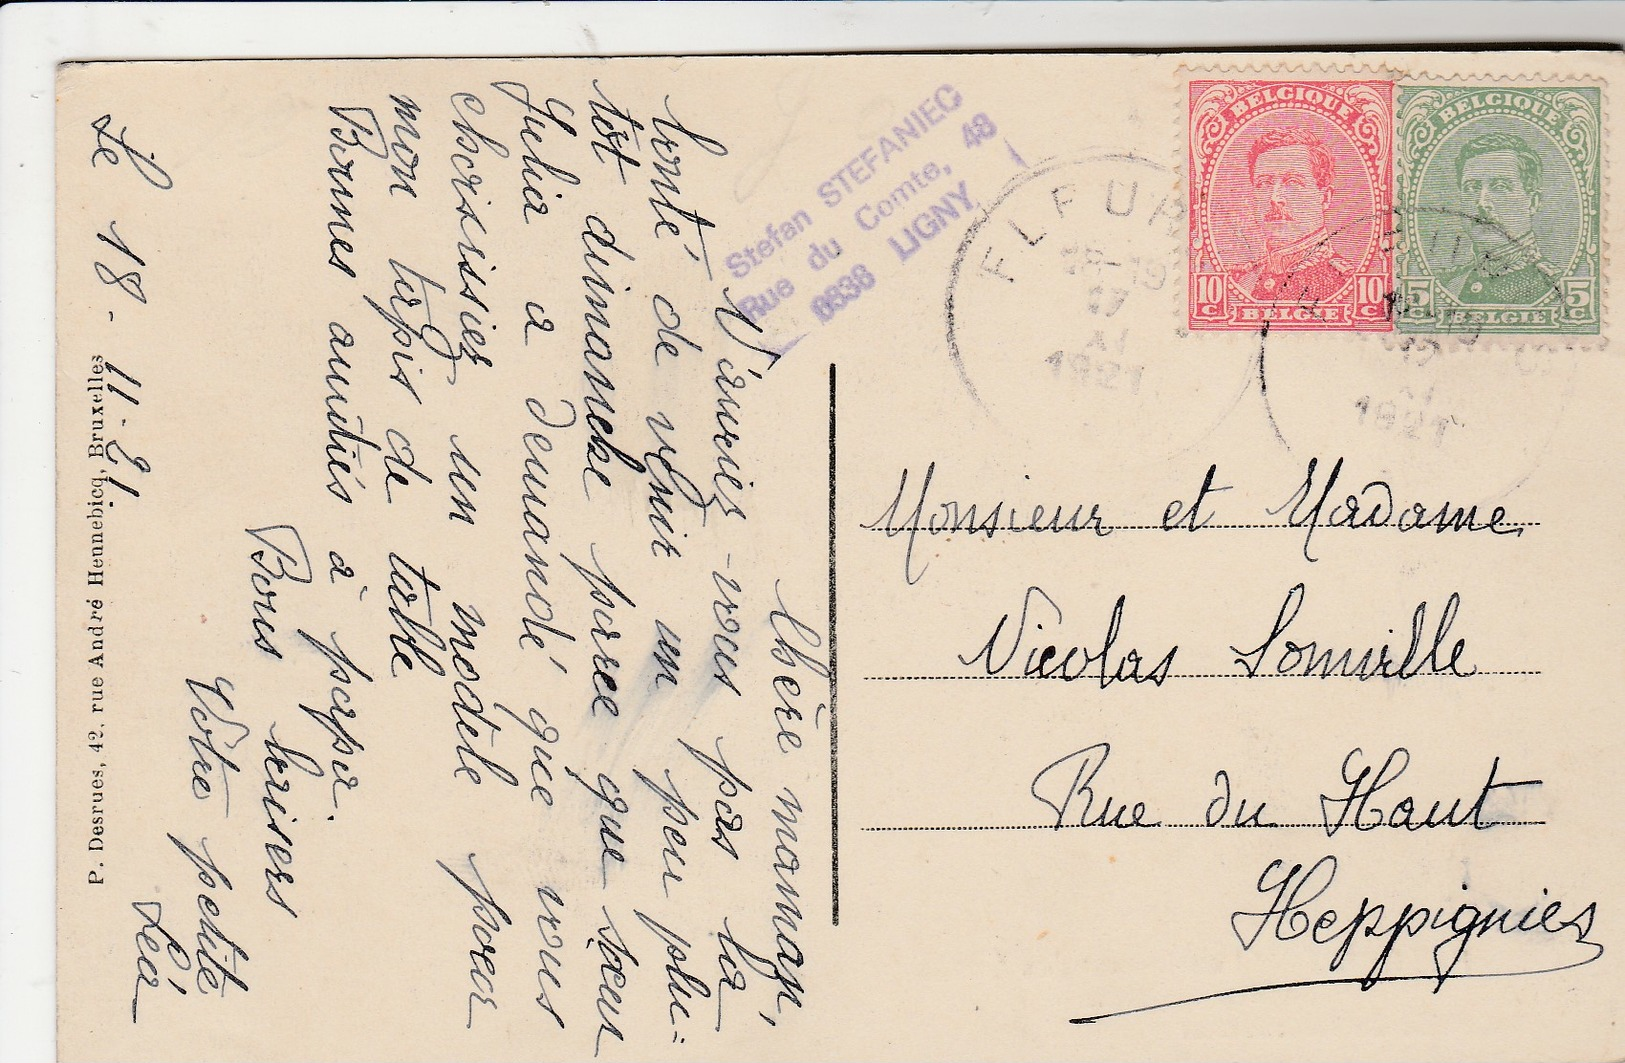 Le 18-11-21.
Chère maman,
N'auriez-vous pas la
bonté de venir un peu plu=
tôt dimanche parce que sœur
Julia a demandé que vous
choisissiez un modèle pour
mon tapis de table
Bonnes amitiés à papa.
Bons baisers
Votre petite
Léa
P. Desrues, 42, rue André Hennebicq, Bruxelles
Stefan STEFANIEC
Rue du Comte, 48
6338 LIGNY
BELGIQUE
10 C 10 C
BELGIË
BELGIQUE
5 C 5 C
BELGIË
FLEUR
18-19
17
XI
1921
17
XI
1921
Monsieur et Madame
Nicolas Somville
Rue du Haut
Heppignies